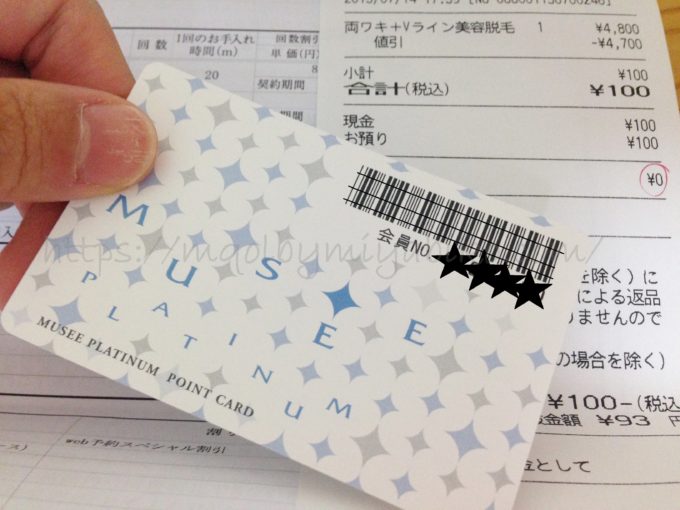 回数
1回のお手入れ
時間(m)
回数割引
単価(円)
20
8
契約期間
期間
両ワキ+Vライン美容脱毛 1 ¥4,800
値引 -4,700
小計 ¥100
合計(税込) ¥100
現金 ¥100
お預り ¥100
¥0
会員NO
MUSEE
PLATINUM
MUSEE PLATINUM POINT CARD
を除く)に
による返品
りませんので
の場合を除く)
¥100-(税込
金額 ¥93 円
金として
割引
web予約スペシャル割引